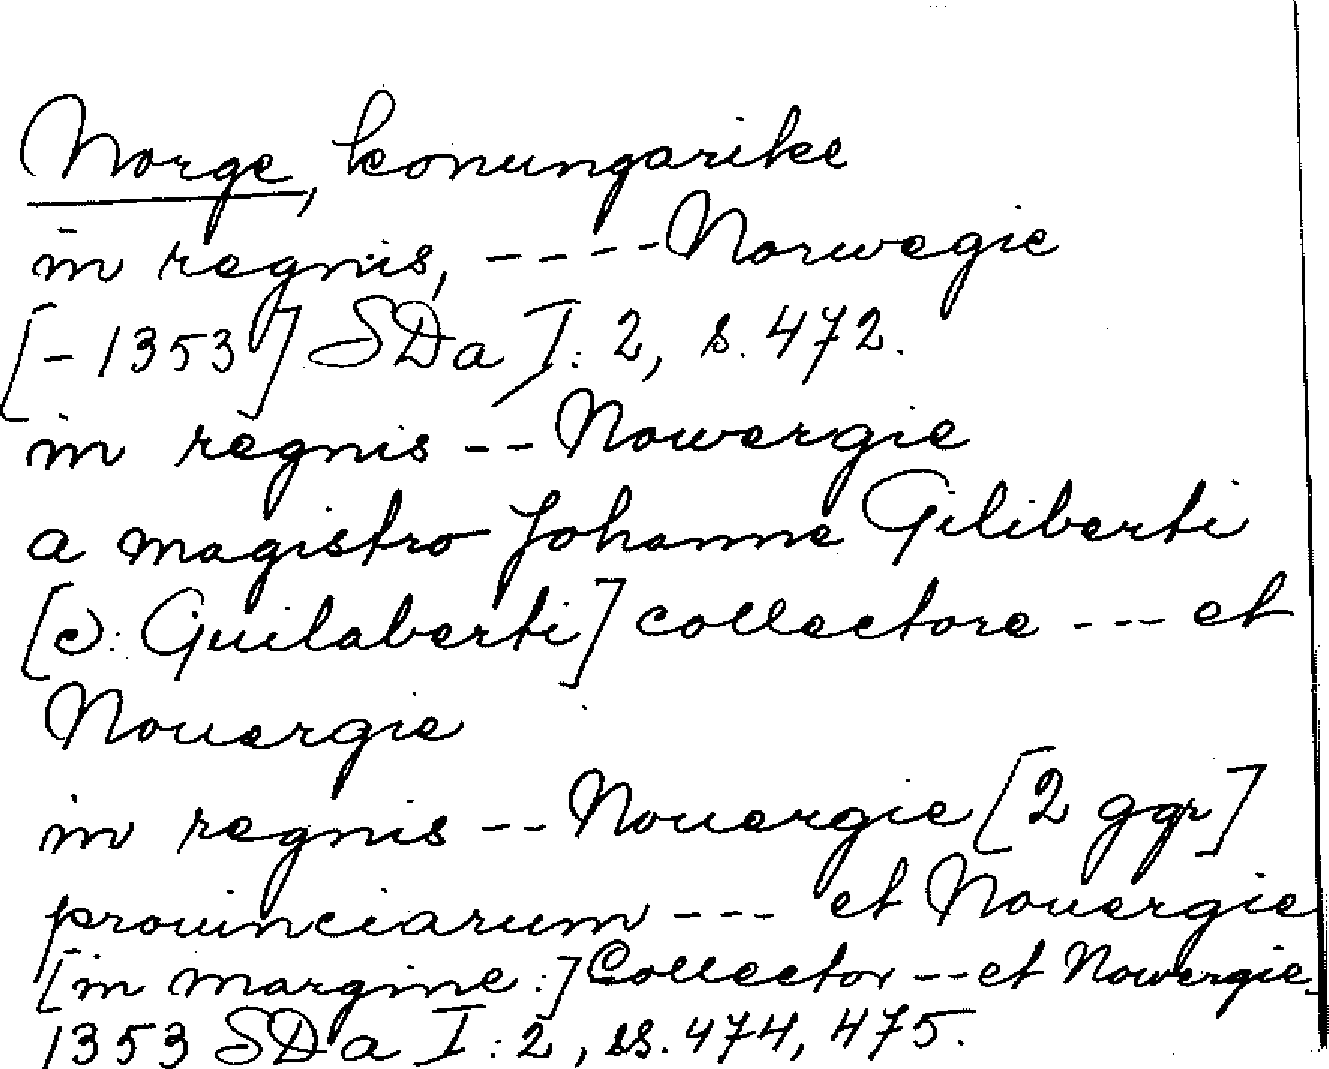 Norge, konungarike
in regnis, ---- Norwegie
[- 1353] SDa I: 2, s. 472.
in regnis -- Nowergie
a magistro Johanne Giliberti
[ɔ: Guilaberti] collectore --- et
Nouergie
in regnis -- Nouergie [2 ggr]
prouinciarum --- et Nouergie
[in margine:] Collector -- et Nowergie.
1353 SDa I: 2, ss. 474, 475.